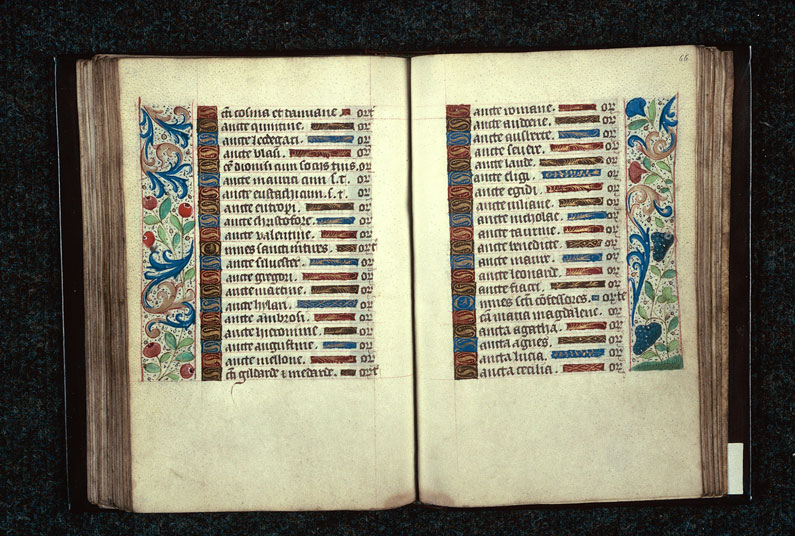 Sancti cosma et damiane. orte
Sancte quintine. or
Sancte leodegari. or
Sancte blasi. or
Sancti dionisi cum sociis tuis. or
Sancte maurici cum s. t. or
Sancte eustachi cum. s. t. or
Sancte eutropi. or
Sancte christofore. or
Sancte valentine. or
Omnes sancti martires. orte
Sancte silvestre. or
Sancte gregori. or
Sancte martine. or
Sancte hylari. or
Sancte ambrosi. or
Sancte iheronime. or
Sancte augustine. or
Sancte mellone. or
Sancti gildarde et medarde. orte
66
Sancte romane. or
Sancte audoene. or
Sancte ausberte. or
Sancte severe. or
Sancte laude. or
Sancte eligi. or
Sancte egidi. or
Sancte iuliane. or
Sancte nicholae. or
Sancte taurine. or
Sancte benedicte. or
Sancte maure. or
Sancte leonarde. or
Sancte fiacri. or
Omnes sancti confessores. orte
Sancta maria magdalene. or
Sancta agatha. or
Sancta agnes. or
Sancta lucia. or
Sancta cecilia. or